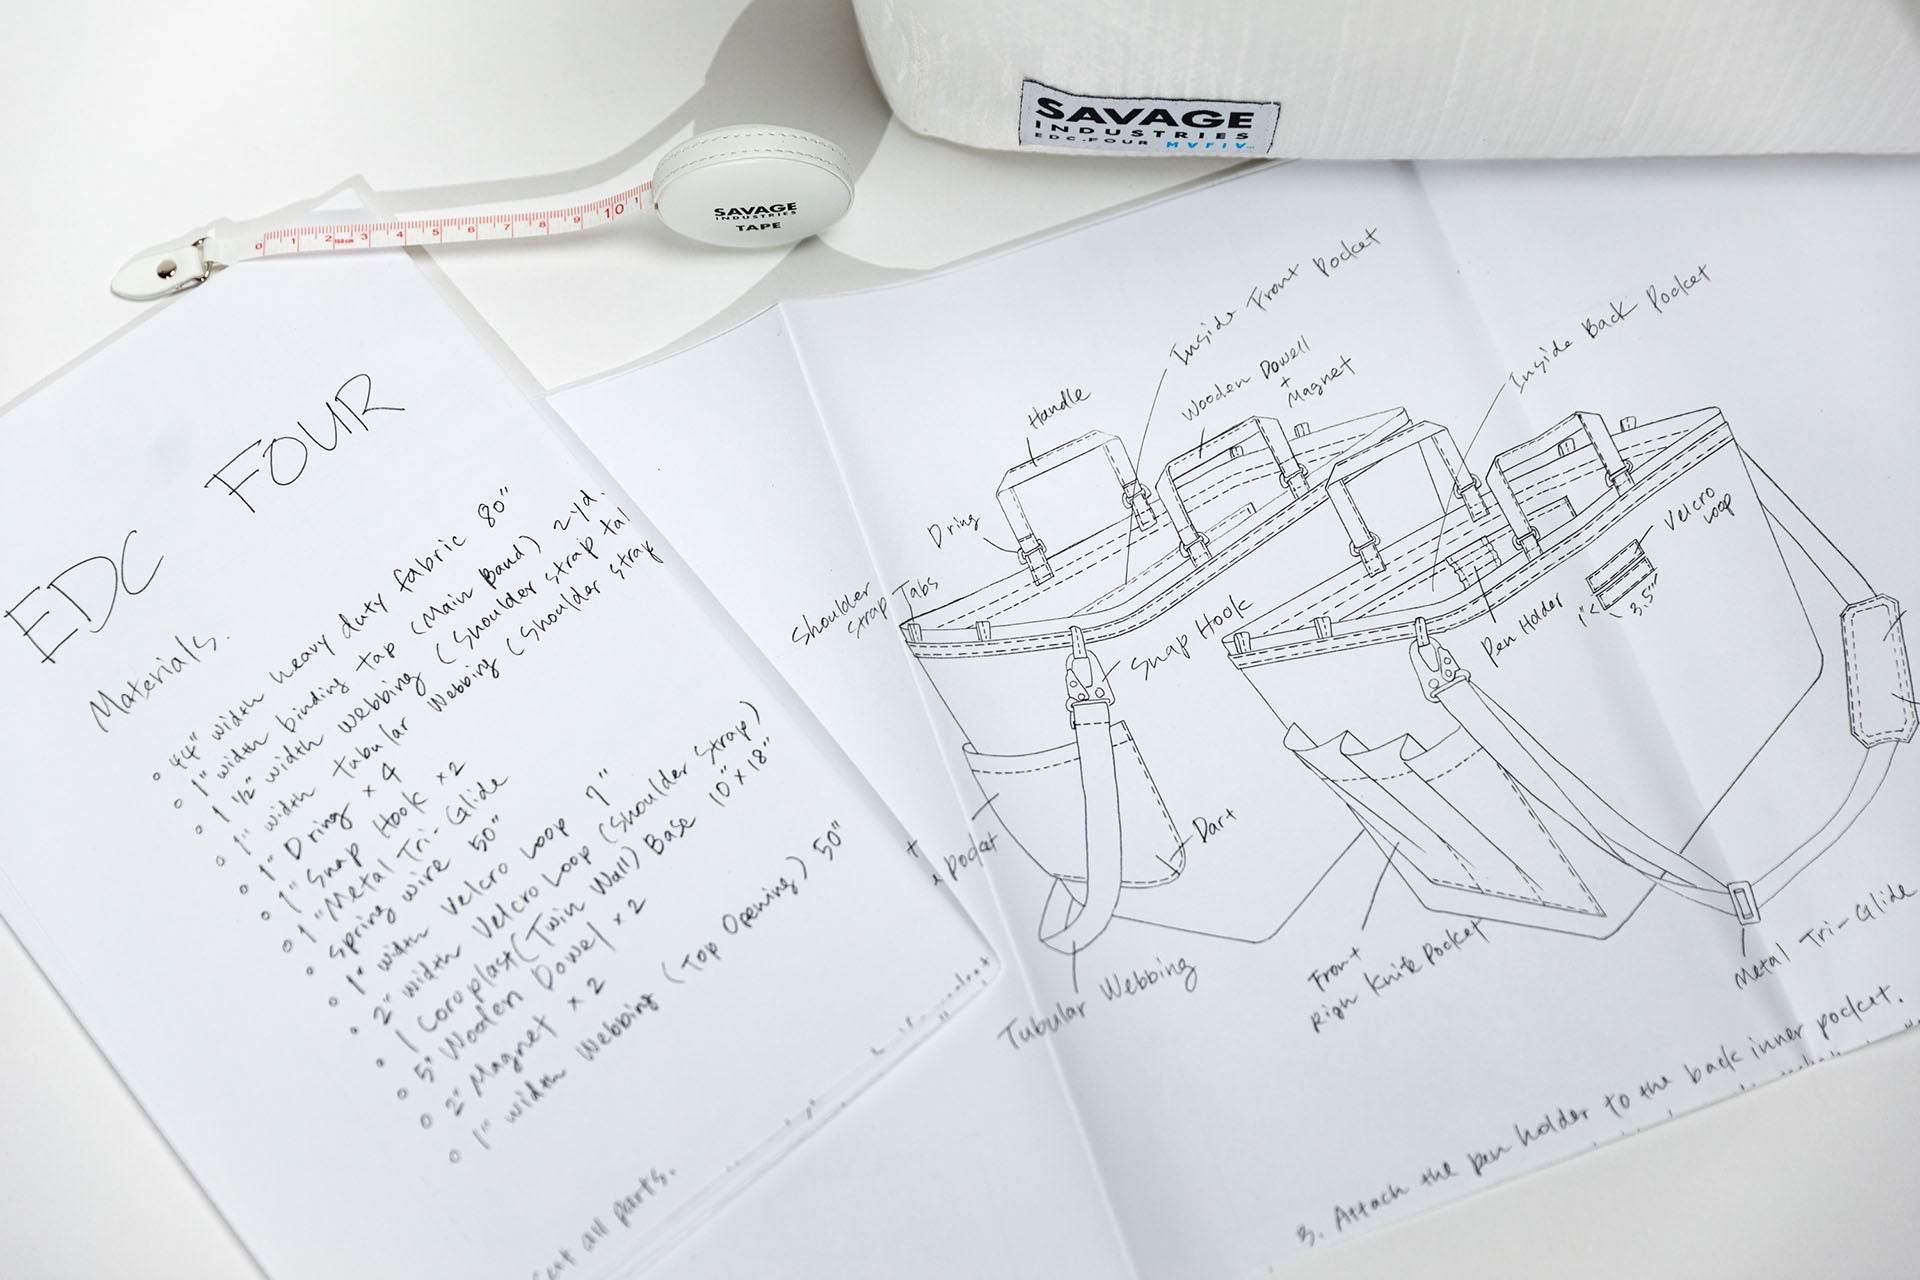 SAVAGE
INDUSTRIES
EDC-FOUR MVFIV
SAVAGE
INDUSTRIES
TAPE
0 1 2 3 4 5 6 7 8 9 10 1
150cm
EDC FOUR
Materials.
44" width heavy duty fabric 80"
1" width binding tap (Main Band) 2yd.
1 1/2" width webbing (Shoulder strap tal
1" width tubular Webbing (Shoulder Strap
1" Dring x 4
1" Snap Hook x2
1" Metal Tri-Glide
Spring wire 50"
1" width Velcro Loop 7"
2" width Velcro Loop (Shoulder Strap)
1 Coroplast (Twin Wall) Base 10" x 18"
5" Wooden Dowel x 2
2" Magnet x 2
1" width Webbing (Top Opening) 50"
all parts.
Inside Front Pocket
Inside Back Pocket
Handle
Wooden Dowell
+
Magnet
Dring
Shoulder
Strap Tabs
Snap Hook
Pen Holder
Velcro
Loop
1"
3.5"
pocket
Dart
Tubular Webbing
Front
Righ Knik Pocket
Metal Tri-Glide
3. Attach the pen holder to the back inner pocket.